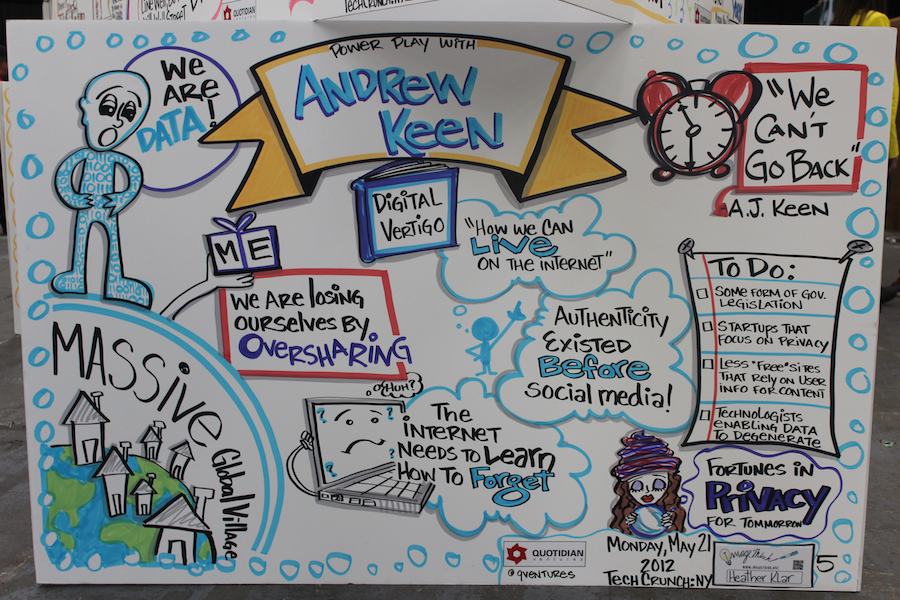 POWER PLAY WITH
ANDREW
KEEN
WE
ARE
DATA!
"WE
CAN'T
GO BACK"
A.J. KEEN
DIGITAL
VERTIGO
ME
"HOW WE CAN
LIVE
ON THE INTERNET"
WE ARE LOSING
OURSELVES BY
OVERSHARING
AUTHENTICITY
EXISTED
BEFORE
SOCIAL MEDIA!
TO DO:
SOME FORM OF GOV.
LEGISLATION
STARTUPS THAT
FOCUS ON PRIVACY
LESS "FREE" SITES
THAT RELY ON USER
INFO FOR CONTENT
TECHNOLOGISTS
ENABLING DATA
TO DEGENERATE
MASSIVE
Global Village
HUH?
THE
INTERNET
NEEDS TO LEARN
HOW TO FORGET
FORTUNES IN
PRIVACY
FOR TOMMORROW
QUOTIDIAN
VENTURES
@QVENTURES
MONDAY, MAY 21
2012
TECHCRUNCH:NY
ImageThink
Heather Klar
5
QUOTIDIAN